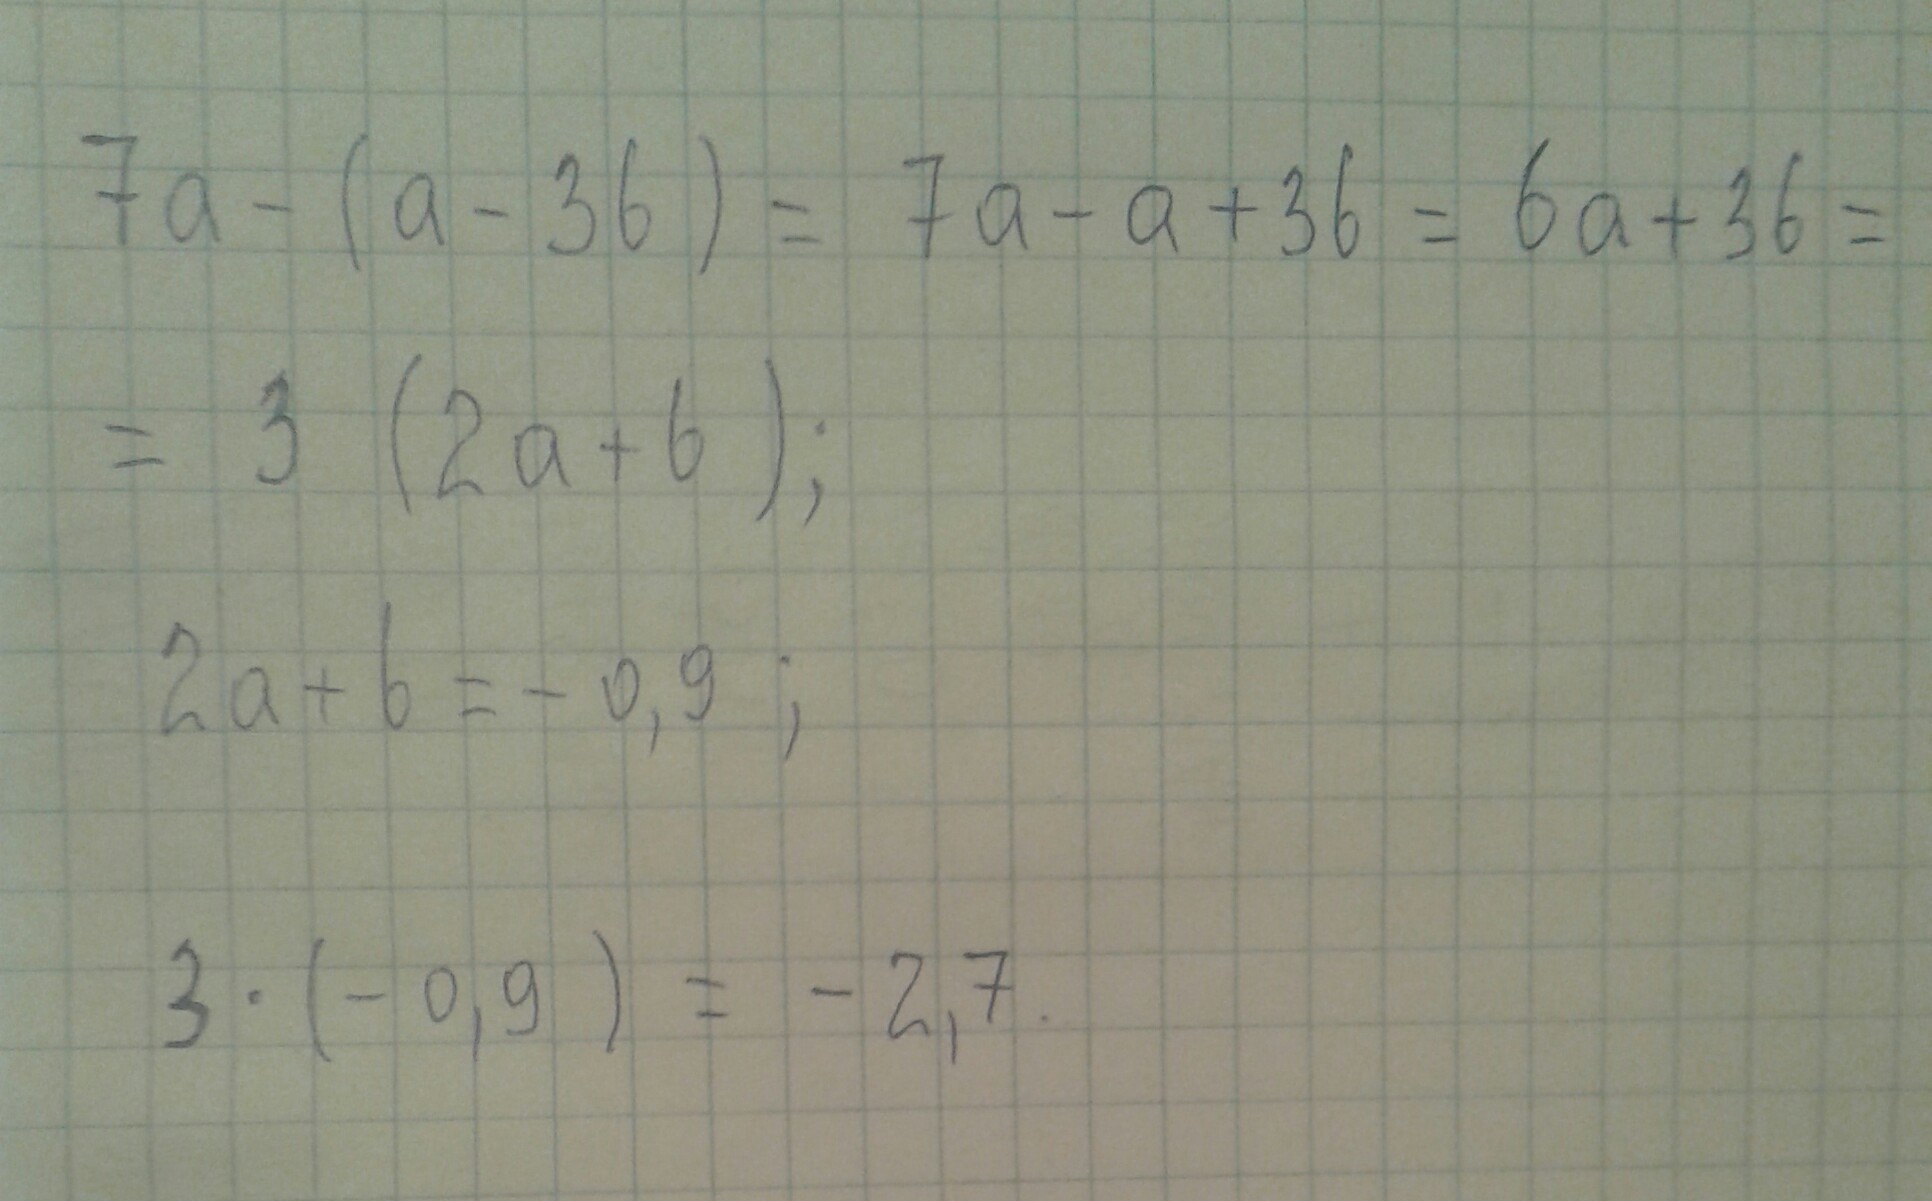 7a - (a - 3b) = 7a - a + 3b = 6a + 3b =
= 3 (2a + b);
2a + b = - 0,9 ;
3 · (- 0,9) = - 2,7.